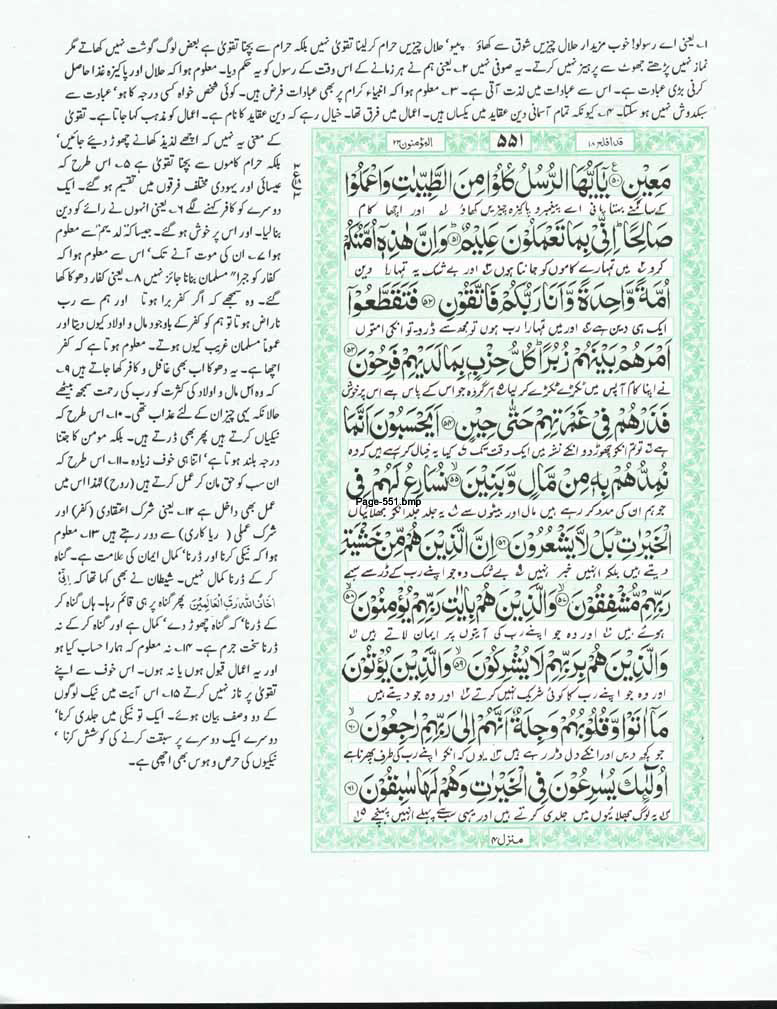 ۱۔ یعنی اے رسولو! خوب مزیدار حلال چیزیں شوق سے کھاؤ پیو‘ حلال چیزیں حرام کر لینا تقویٰ نہیں بلکہ حرام سے بچنا تقویٰ ہے بعض لوگ گوشت نہیں کھاتے مگر
نماز نہیں پڑھتے جھوٹ سے پرہیز نہیں کرتے۔ یہ صوفی نہیں ۲۔ یعنی ہم نے ہر زمانے کے اس وقت کے رسول کو یہ حکم دیا۔ معلوم ہوا کہ حلال اور پاکیزہ غذا حاصل
کرنی بڑی عبادت ہے۔ اس سے عبادات میں لذت آتی ہے۔ ۳۔ معلوم ہوا کہ انبیاء کرام پر بھی عبادات فرض ہیں۔ کوئی شخص خواہ کسی درجہ کا ہو‘ عبادت سے
سبکدوش نہیں ہو سکتا۔ ۴۔ کیونکہ تمام آسمانی دین عقاید میں یکساں ہیں۔ اعمال میں فرق تھا۔ خیال رہے کہ دین عقاید کا نام ہے۔ اعمال کو مذہب کہا جاتا ہے۔ تقویٰ
کے معنی یہ نہیں کہ اچھے لذیذ کھانے چھوڑ دیئے جائیں‘
بلکہ حرام کاموں سے بچنا تقویٰ ہے ۵۔ اس طرح کہ
عیسائی اور یہودی مختلف فرقوں میں تقسیم ہو گئے۔ ایک
دوسرے کو کافر کہنے لگے ۶۔ یعنی انہوں نے رائے کو دین
بنا لیا۔ اور اس پر خوش ہو گئے۔ جیسا کہ لدیہم سے معلوم
ہوا ۷۔ ان کی موت آنے تک‘ اس سے معلوم ہوا کہ
کفار کو جبراً مسلمان بنانا جائز نہیں ۸۔ یعنی کفار دھوکا کھا
گئے۔ وہ سمجھے کہ اگر کفر برا ہوتا اور ہم سے رب
ناراض ہوتا تو ہم کو کفر کے باوجود مال و اولاد کیوں دیتا اور
عموماً مسلمان غریب کیوں ہوتے۔ معلوم ہوتا ہے کہ کفر
اچھا ہے۔ یہ دھوکا اب بھی غافل و کافر کھا جاتے ہیں ۹۔
کہ وہ اس مال و اولاد کی کثرت کو رب کی رحمت سمجھ بیٹھے
حالانکہ یہی چیز ان کے لئے عذاب تھی۔ ۱۰۔ اس طرح کہ
نیکیاں کرتے ہیں پھر بھی ڈرتے ہیں۔ بلکہ مومن کا جتنا
درجہ بلند ہوتا ہے‘ اتنا ہی خوف زیادہ ۔۱۱۔ اس طرح کہ
ان سب کو حق مان کر عمل کرتے ہیں (روح) لہٰذا اس میں
عمل بھی داخل ہے ۱۲۔ یعنی شرک اعتقادی (کفر) اور
شرک عملی (ریا کاری) سے دور رہتے ہیں ۱۳۔ معلوم
ہوا کہ نیکی کرنا اور ڈرنا‘ کمال ایمان کی علامت ہے۔ گناہ
کر کے ڈرنا کمال نہیں۔ شیطان نے بھی کہا تھا کہ اِنِّیْٓ
اَخَافُ اللہَ رَبَّ الْعَالَمِیْنَ پھر گناہ پر ہی قائم رہا۔ ہاں گناہ کر
کے ڈرنا‘ کہ گناہ چھوڑ دے‘ کمال ہے اور گناہ کر کے نہ
ڈرنا سخت جرم ہے۔ ۱۴۔ نہ معلوم کہ ہمارا حساب کیا ہو
اور یہ اعمال قبول ہوں یا نہ ہوں۔ اس خوف سے اپنے
تقویٰ پر ناز نہیں کرتے ۱۵۔ اس آیت میں نیک لوگوں
کے دو وصف بیان ہوئے۔ ایک تو نیکی میں جلدی کرنا‘
دوسرے ایک دوسرے پر سبقت کرنے کی کوشش کرنا‘
نیکیوں کی حرص و ہوس بھی اچھی ہے۔
قد افلح ۱۸ ۵۵۱ المؤمنون ۲۳
مَعِیْنٍ ﴿۵۰﴾ یٰۤاَیُّهَا الرُّسُلُ كُلُوْا مِنَ الطَّیِّبٰتِ وَاعْمَلُوْا
کے سامنے بہتا پانی اے پیغمبرو پاکیزہ چیزیں کھاؤ اور اچھا کام
صَالِحًا ؕ اِنِّیْ بِمَا تَعْمَلُوْنَ عَلِیْمٌ ﴿۵۱﴾ وَاِنَّ هٰذِهٖۤ اُمَّتُكُمْ
کرو میں تمہارے کاموں کو جانتا ہوں اور بے شک یہ تمہارا دین
اُمَّةً وَّاحِدَةً وَّاَنَا رَبُّكُمْ فَاتَّقُوْنِ ﴿۵۲﴾ فَتَقَطَّعُوْۤا
ایک ہی دین ہے اور میں تمہارا رب ہوں تو مجھ سے ڈرو تو انکی امتوں
اَمْرَهُمْ بَیْنَهُمْ زُبُرًا ؕ كُلُّ حِزْبٍۭ بِمَا لَدَیْهِمْ فَرِحُوْنَ ﴿۵۳﴾
نے اپنا کام آپس میں ٹکڑے ٹکڑے کر لیا ہر گروہ جو اس کے پاس ہے اس پر خوش
فَذَرْهُمْ فِیْ غَمْرَتِهِمْ حَتّٰی حِیْنٍ ﴿۵۴﴾ اَیَحْسَبُوْنَ اَنَّمَا
ہے تو تم انکو چھوڑ دو انکے نشہ میں ایک وقت تک کیا یہ خیال کر رہے ہیں کہ وہ
نُمِدُّهُمْ بِهٖ مِنْ مَّالٍ وَّبَنِیْنَ ﴿۵۵﴾ نُسَارِعُ لَهُمْ فِی
جو ہم ان کی مدد کر رہے ہیں مال اور بیٹوں سے یہ جلد جلد انکو بھلائیاں
Page-551.bmp
الْخَیْرٰتِ ؕ بَلْ لَّا یَشْعُرُوْنَ ﴿۵۶﴾ اِنَّ الَّذِیْنَ هُمْ مِّنْ خَشْیَةِ
دیتے ہیں بلکہ انہیں خبر نہیں بے شک وہ جو اپنے رب کے ڈر سے سہمے
رَبِّهِمْ مُّشْفِقُوْنَ ﴿۵۷﴾ وَالَّذِیْنَ هُمْ بِاٰیٰتِ رَبِّهِمْ یُؤْمِنُوْنَ ﴿۵۸﴾
ہوئے ہیں اور وہ جو اپنے رب کی آیتوں پر ایمان لاتے ہیں
وَالَّذِیْنَ هُمْ بِرَبِّهِمْ لَا یُشْرِكُوْنَ ﴿۵۹﴾ وَالَّذِیْنَ یُؤْتُوْنَ
اور وہ جو اپنے رب کا کوئی شریک نہیں کرتے اور وہ جو دیتے ہیں
مَاۤ اٰتَوْا وَّقُلُوْبُهُمْ وَجِلَةٌ اَنَّهُمْ اِلٰی رَبِّهِمْ رٰجِعُوْنَ ﴿۶۰﴾
جو کچھ دیں اور انکے دل ڈر رہے ہیں یوں کہ انکو اپنے رب کی طرف پھرنا ہے
اُولٰٓىِٕكَ یُسٰرِعُوْنَ فِی الْخَیْرٰتِ وَهُمْ لَهَا سٰبِقُوْنَ ﴿۶۱﴾
یہ لوگ بھلائیوں میں جلدی کرتے ہیں اور یہی سب سے پہلے انہیں پہنچے
منزل ۴